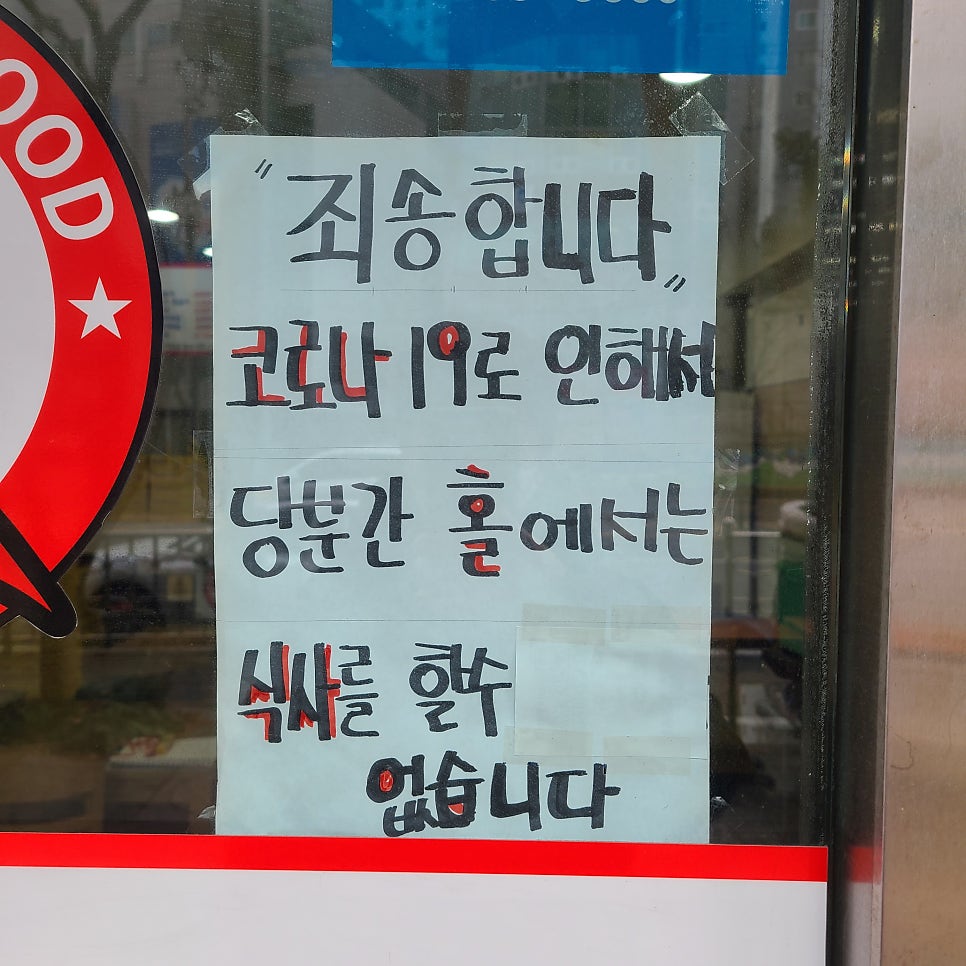 OOD
"죄송합니다"
코로나19로 인해서
당분간 홀에서는
식사를 할수
없습니다